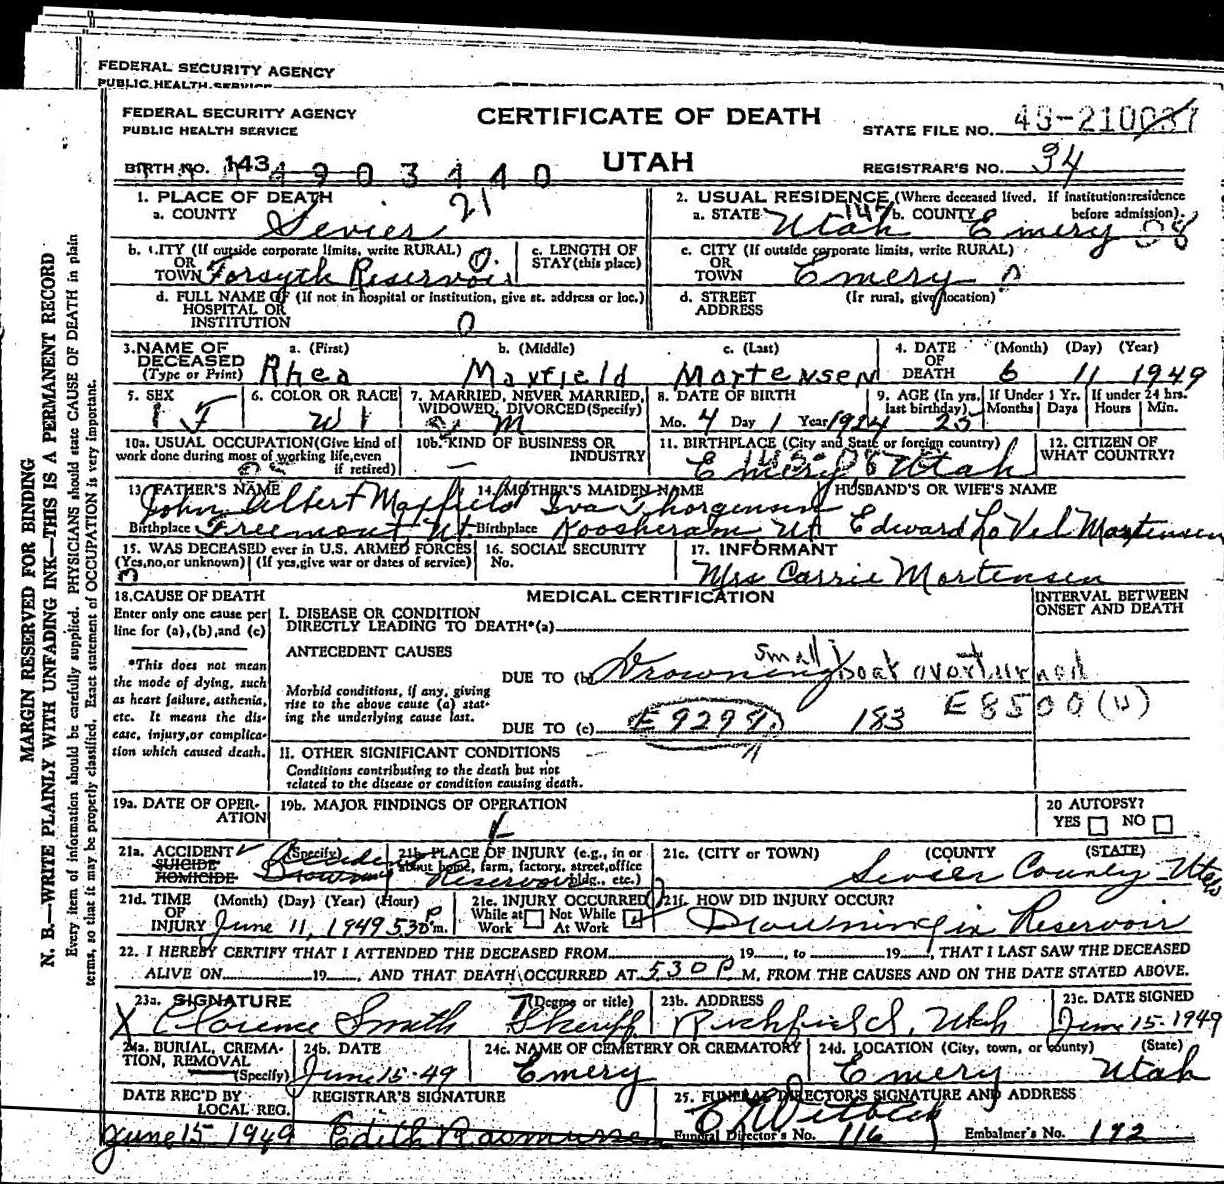 FEDERAL SECURITY AGENCY
PUBLIC HEALTH SERVICE
FEDERAL SECURITY AGENCY
PUBLIC HEALTH SERVICE
CERTIFICATE OF DEATH
UTAH
STATE FILE NO. 49-210037
REGISTRAR'S NO. 94
BIRTH NO. 143 4903440
MARGIN RESERVED FOR BINDING
N. B.—WRITE PLAINLY WITH UNFADING INK—THIS IS A PERMANENT RECORD
Every item of information should be carefully supplied. PHYSICIANS should state CAUSE OF DEATH in plain
terms, so that it may be properly classified. Exact statement of OCCUPATION is very important.
1. PLACE OF DEATH 21
a. COUNTY Sevier
2. USUAL RESIDENCE (Where deceased lived. If institution: residence before admission).
a. STATE Utah 147 b. COUNTY Emery 08
b. CITY (If outside corporate limits, write RURAL) OR TOWN Forsyth Reservoir 0.
c. LENGTH OF STAY (this place)
c. CITY (If outside corporate limits, write RURAL) OR TOWN Emery
d. FULL NAME OF (If not in hospital or institution, give st. address or loc.) HOSPITAL OR INSTITUTION 0
d. STREET ADDRESS (If rural, give location)
3. NAME OF DECEASED (Type or Print) a. (First) Rhea b. (Middle) Maxfield c. (Last) Mortensen
4. DATE OF DEATH (Month) (Day) (Year) 6 11 1949
5. SEX 1 F
6. COLOR OR RACE W 1
7. MARRIED, NEVER MARRIED, WIDOWED, DIVORCED (Specify) M
8. DATE OF BIRTH Mo. 4 Day 1 Year 1924
9. AGE (In yrs. last birthday) 25 If Under 1 Yr. Months Days If under 24 hrs. Hours Min.
10a. USUAL OCCUPATION (Give kind of work done during most of working life, even if retired)
10b. KIND OF BUSINESS OR INDUSTRY —
11. BIRTHPLACE (City and State or foreign country) Emery Utah
12. CITIZEN OF WHAT COUNTRY?
13. FATHER'S NAME John Albert Maxfield
Birthplace Freemont, Ut.
14. MOTHER'S MAIDEN NAME Iva Thorgensen
Birthplace Koosharam Ut
HUSBAND'S OR WIFE'S NAME
Edward LaVel Mortensen
15. WAS DECEASED ever in U.S. ARMED FORCES
(Yes, no, or unknown) (If yes, give war or dates of service)
16. SOCIAL SECURITY No.
17. INFORMANT
Mrs Carrie Mortensen
18. CAUSE OF DEATH
Enter only one cause per line for (a), (b), and (c)
*This does not mean the mode of dying, such as heart failure, asthenia, etc. It means the disease, injury, or complication which caused death.
MEDICAL CERTIFICATION
INTERVAL BETWEEN ONSET AND DEATH
I. DISEASE OR CONDITION DIRECTLY LEADING TO DEATH*(a)
ANTECEDENT CAUSES
Morbid conditions, if any, giving rise to the above cause (a) stating the underlying cause last.
DUE TO (b) Drowning small boat overturned
DUE TO (c) E9299 183 E8500 (11)
II. OTHER SIGNIFICANT CONDITIONS
Conditions contributing to the death but not related to the disease or condition causing death.
19a. DATE OF OPERATION
19b. MAJOR FINDINGS OF OPERATION
20 AUTOPSY? YES NO
21a. ACCIDENT SUICIDE HOMICIDE (Specify) Accident Drowning
21b. PLACE OF INJURY (e.g., in or about home, farm, factory, street, office bldg., etc.) Reservoir
21c. (CITY OR TOWN) (COUNTY) (STATE)
Sevier County Utah
21d. TIME OF INJURY (Month) (Day) (Year) (Hour) June 11, 1949 5:30 P m.
21e. INJURY OCCURRED While at Work Not While At Work
21f. HOW DID INJURY OCCUR?
Drowning in Reservoir
22. I HEREBY CERTIFY THAT I ATTENDED THE DECEASED FROM 19, to 19, THAT I LAST SAW THE DECEASED
ALIVE ON 19, AND THAT DEATH OCCURRED AT 530 P M, FROM THE CAUSES AND ON THE DATE STATED ABOVE.
23a. SIGNATURE (Degree or title)
X Clorence Smith Sheriff
23b. ADDRESS
Richfield, Utah
23c. DATE SIGNED
June 15-1949
24a. BURIAL, CREMATION, REMOVAL (Specify)
24b. DATE
June 15-49
24c. NAME OF CEMETERY OR CREMATORY
Emery
24d. LOCATION (City, town, or county) (State)
Emery Utah
DATE REC'D BY LOCAL REG.
June 15 1949
REGISTRAR'S SIGNATURE
Edith Rasmussen
25. FUNERAL DIRECTOR'S SIGNATURE AND ADDRESS
Funeral Director's No. 116 Embalmer's No. 192